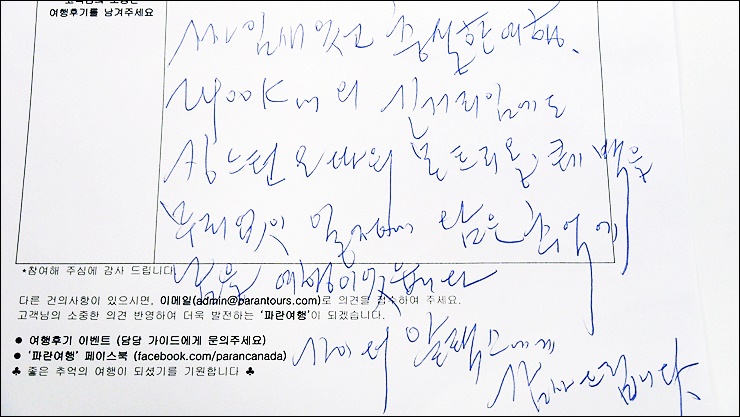 고객님의 소중한
여행후기를 남겨주세요
짜임새 있고 충실한 여행.
1400K m 의
킹스턴 오타와 몬트리올, 퀘백을
무리없이 일정에 담은 추억에
남을 여행이었습니다
*참여해 주심에 감사 드립니다
다른 건의사항이 있으시면, 이메일(admin@parantours.com)로 의견을 접수하여 주세요.
고객님의 소중한 의견 반영하여 더욱 발전하는 '파란여행'이 되겠습니다.
● 여행후기 이벤트 (담당 가이드에게 문의주세요)
● '파란여행' 페이스북 (facebook.com/parancanada)
♣ 좋은 추억의 여행이 되셨기를 기원합니다 ♣
감사드립니다